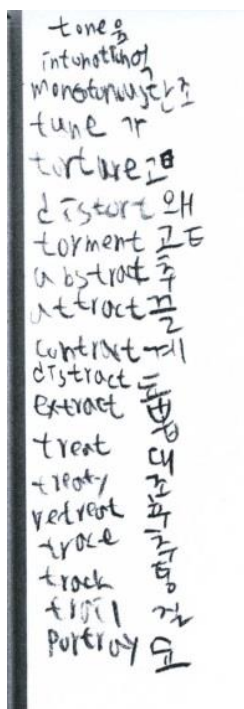 tone 음
intonation 억
monotonous 단조
tune 가
torture 고
distort 왜
torment 고
abstract 추
attract 끌
contract 계
distract
extract
treat 대
treaty 조
retreat
trace 추
track
trail
portray 묘